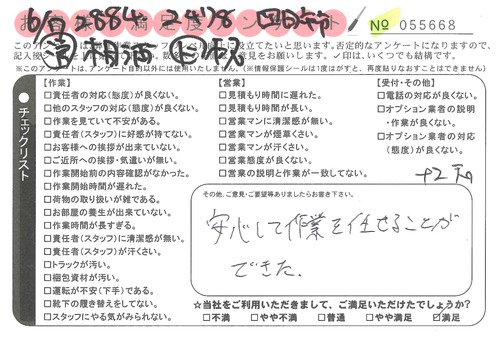 No 055668
このアンケートは、
※このアンケートは、アンケート目的以外には使用いたしません。(※情報保護シールは1度はがすと、再度貼りなおすことはできません)
チェックリスト
【作業】
□責任者の対応(態度)が良くない。
□他のスタッフの対応(態度)が良くない。
□作業を見ていて不安がある。
□責任者(スタッフ)に好感が持てない。
□お客様への挨拶が出来ていない。
□ご近所への挨拶・気遣いが無い。
□作業開始前の内容確認がなかった。
□作業開始時間が遅れた。
□荷物の取り扱いが雑である。
□お部屋の養生が出来ていない。
□作業時間が長すぎる。
□責任者(スタッフ)に清潔感が無い。
□責任者(スタッフ)が汗くさい。
□トラックが汚い。
□梱包資材が汚い。
□運転が不安(下手)である。
□靴下の履き替えをしてない。
□スタッフにやる気がみられない。
【営業】
□見積もり時間に遅れた。
□見積もり時間が長い。
□営業マンに清潔感が無い。
□営業マンが煙草くさい。
□営業マンが汗くさい。
□営業態度が良くない。
□営業の説明と作業が一致してない。
【受付・その他】
□電話の対応が良くない。
□オプション業者の説明・作業が良くない。
□オプション業者の対応(態度)が良くない。
その他、ご意見・ご要望等ありましたらお書き下さい。
安心して作業を任せることが
できた.
☆当社をご利用いただきまして、ご満足いただけたでしょうか?
□不満 □やや不満 □普通 □やや満足 ☑満足